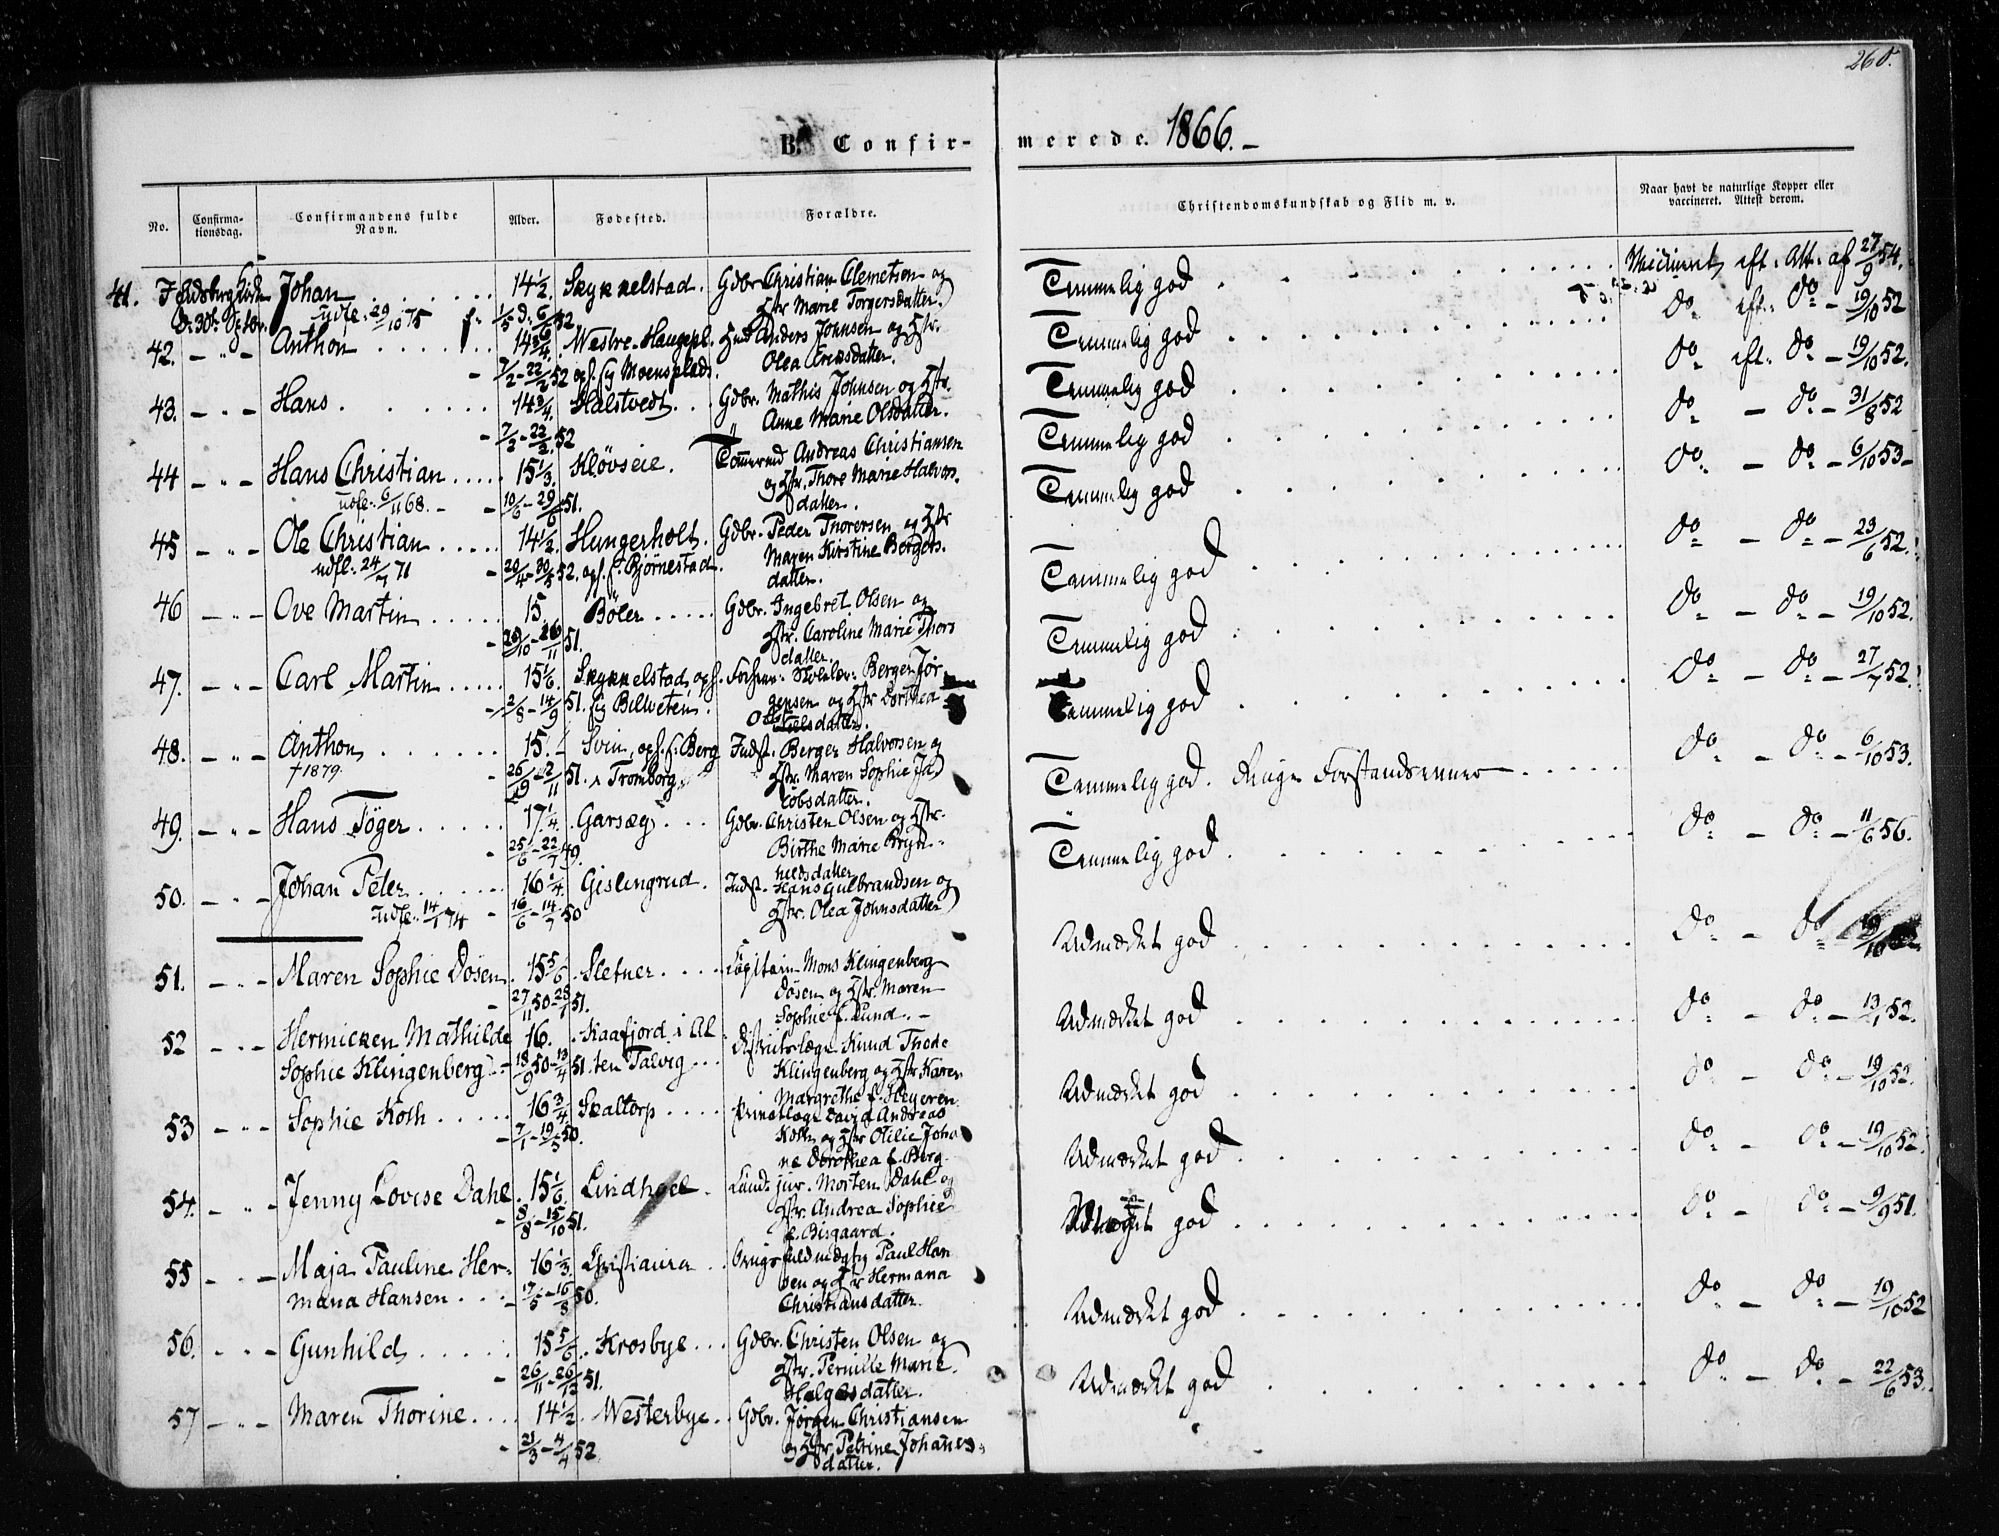 260.
B. Confir- merede. 1866. -
No.
Confirma-
tionsdag.
Confirmandens fulde
Navn.
Alder.
Fødested.
Forældre.
Christendomskundskab og Flid m. v.
Naar havt de naturlige Kopper eller
vaccineret. Attest derom.
41. Johan 14 1/2. Skykkelstad. Gdbr. Christian Clemetsen og
udfl. 29/10 75 f. 1/5 d. 6/6 52 Hstr. Marie Torgersdatter. Temmelig god eft. Att. af 27/9 54.
42. - " - Anthon 14 3/4. Westre-Haugepl. Hmd Anders Johnsen og Hstr.
7/2 - 22/2 52 opf. Moensplads. Olea Eriksdatter. Temmelig god do eft. do - 19/10 52
43. - " - Hans 14 3/4. Halstvedt. Gdbr. Mathis Johnsen og Hstr.
7/2 - 22/2 52 Anne Marie Olsdatter. Temmelig god do eft. do - 19/10 52.
44 - " - Hans Christian 15 1/3. Kløvseie. Tømmermd Andreas Christiansen
udfl. 6/11 68. - 10/6 - 29/6 51. og Hstr. Thore Marie Halvors.
datter. Temmelig god do - do - 31/8 52
45 - " - Ole Christian 14 1/2. Hungerholt. Gdbr. Peder Thorersen og Hstr
udfl. 24/7 71 - 20/4 - 30/5 52. opf. f. Bjørnestad. Maren Kirstine Bergers.
datter. Temmelig god do - do - 6/10 53 -
46 - " - Ove Martin 15. Böler Gdbr. Ingebret Olsen og
20/10 - 26/11 51. Hstr. Caroline Marie Thors
datter. Temmelig god do - do - 23/6 52.
47. - " - Carl Martin 15 1/6. Skykkelstad, opf. Berger Jør
2/8 - 14/9 51. Billveten. gensen og Hstr Dorthea
Olsdatter. Temmelig god do - do - 19/10 52.
48. - " - Anthon 15. Svin, opf. f. Berg Indst. Berger Halvorsen og
†1879. 26/9 - 2/11 51. i Tromborg. Hstr. Maren Sophie Ja
cobsdatter. Temmelig god do - do - 27/7 52.
49. - " - Hans Töger 17 1/4. Garsæg Gdbr. Christen Olsen og Hstr.
25/6 - 22/7 49. Birthe Marie Bryn-
hildsdatter Temmelig god. Ringe Forstandsevner do - do - 6/10 53.
50. - " - Johan Peter 16 1/4. Gislingrud. Indst. Hans Gulbrandsen og
udfl. 14/4 74 - 16/6 - 14/7 50 Hstr. Olea Johnsdatter Temmelig god do - do - 11/6 56.
51. - " - Maren Sophie Dösen 15 5/6. Sletner Capitain Mons Klingenberg
27/11 50 - 28/1 51. Dösen og Hstr. Maren
Sophie f. Lund. - Udmærket god do - do - 19/10
52 - " - Hermicken Mathilde 16. Kaafjord i Al
Sophie Klingenberg 18/9 50 - 13/4 51. ten Talvig Distriktslæge Knud Thode
Klingenberg og Hstr Karen
Margrethe f. Heyeren. Udmærket god do - do - 13/1 52.
53 - " - Sophie Koth 16 3/4 Skaltorp Privatlæge David Andreas
7/1 - 19/5 50. Koth og Hstr Otilie Joha
ne Dorothea f. Berg. Udmærket god do - do - 19/10 52.
54. - " - Jenny Lovise Dahl 15 1/6. Lindhoel. Morten Dahl og
8/8 - 15/10 51. Hstr. Andrea Sophie
f. Bisgaard. Udmærket god do - do - 19/10 52.
55 - " - Maja Pauline Her-
mana Hansen 16 1/3. Christiania Brugsfuldmægtig Paul Han
17/5 - 16/8 50. sen og Hstr Hermana
Christiansdatter. god do - do - 9/9 51.
56. - " - Gunhild 15 5/6. Krosbye Gdbr. Christen Olsen og
26/11 - 26/12 51. Hstr. Pernille Marie
Helgesdatter. Udmærket god do - do - 19/10 52
57 - " - Maren Thorine 14 1/2. Westerbye Gdbr. Jørgen Christiansen
21/3 - 4/4 52 og Hstr. Petrine Johanes-
datter. Udmærket god do - do - 22/6 53.